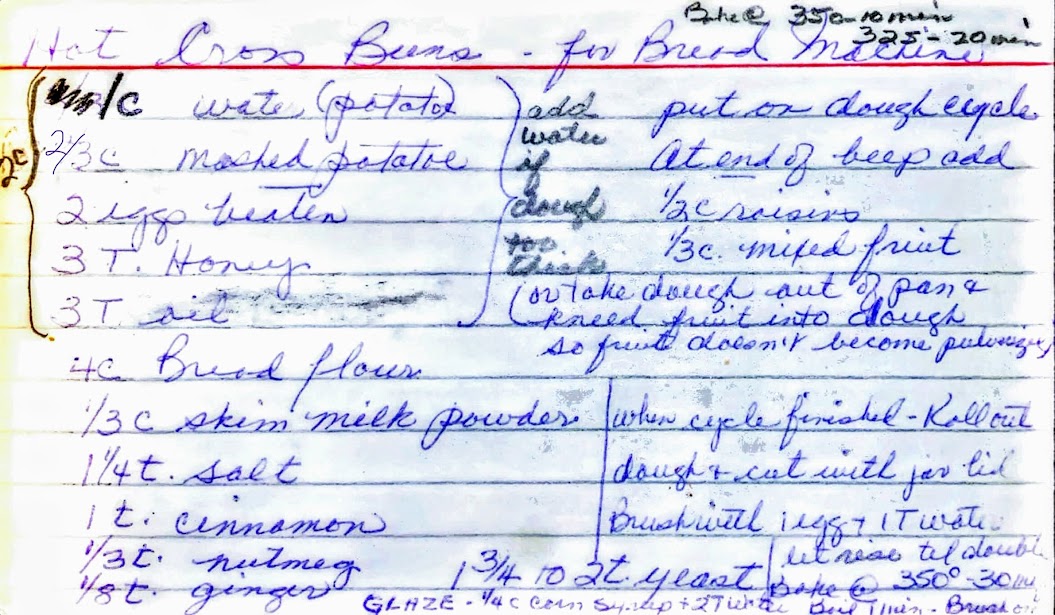 Bake @ 350-10 min
325 - 20 min
Hot Cross Buns - for Bread Machine
2c
1c wate (potatoe)
2/3c mashed potatoe
2 eggs beaten
3 T. Honey
3 T oil
add
water
if
dough
too
thick
put on dough cycle
At end of beep add
1/2c raisins
1/3c. mixed fruit
(or take dough out of pan &
kneed fruit into dough
so fruit doesn't become
4c Bread flour
1/3 c skim milk powder
1 1/4 t. salt
1 t. cinnamon
1/3 t. nutmeg
1/8 t. ginger
1 3/4 to 2t. yeast
when cycle finished - Roll out
dough & cut with jar lid
Brush with 1 egg + 1T water
let rise til double
Bake @ 350° - 30 min
GLAZE - 1/4 c corn syrup + 2T water Boil 1 min - Brush on